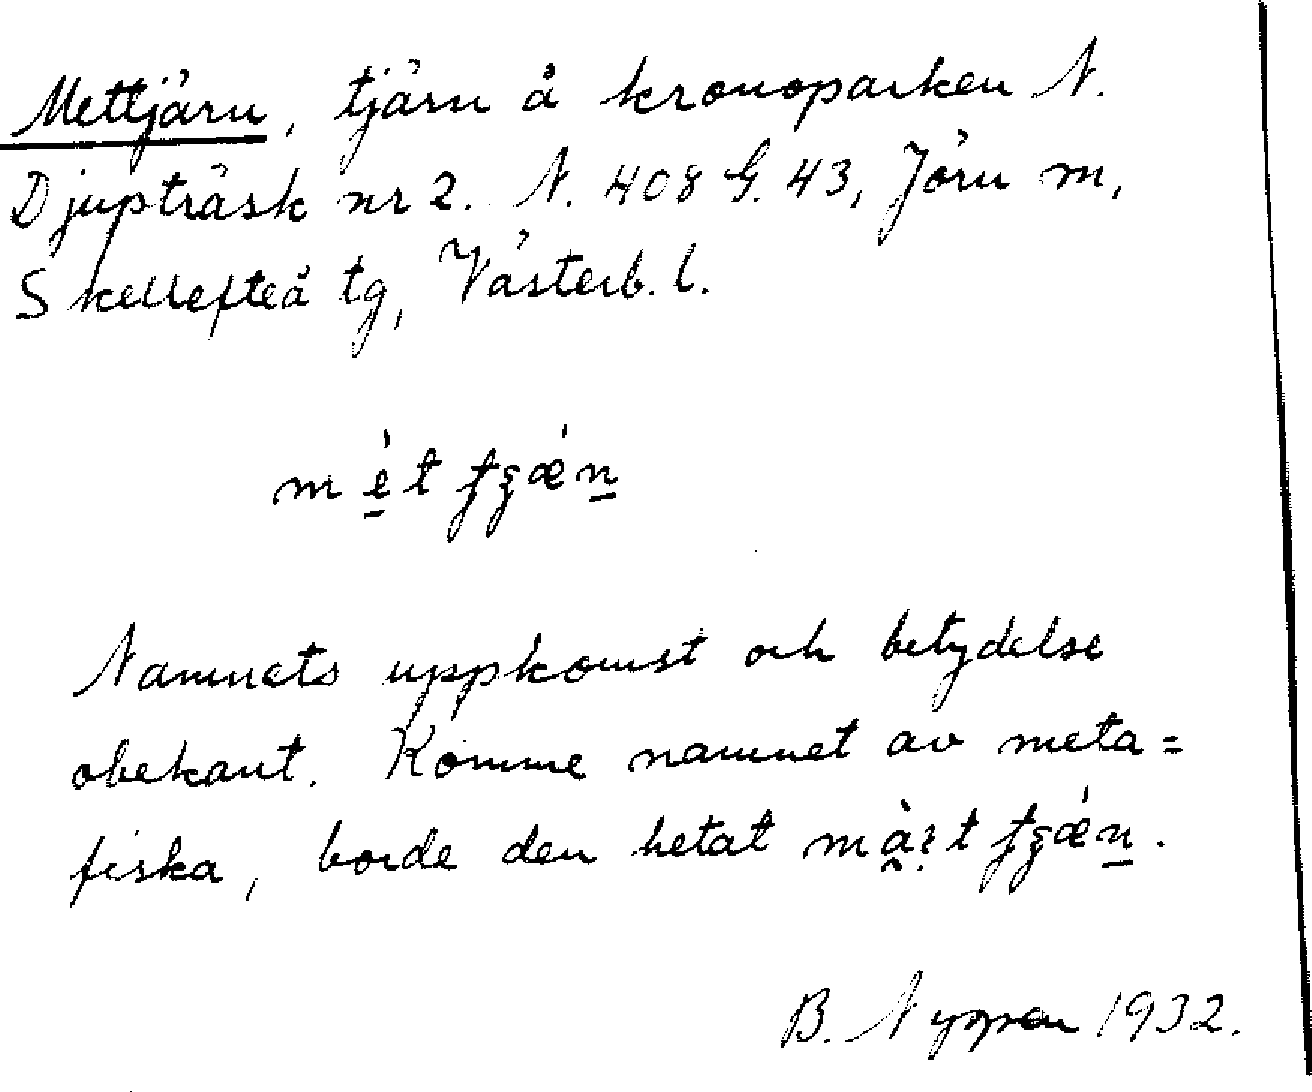 Mettjärn, tjärn å kronoparken N.
Djupträsk nr 2. N. 408 G. 43, Jörn m,
Skellefteå tg, Västerb. l.
Namnets uppkomst och betydelse
obekant. Komme namnet av meta=
fiska, borde den hetat
B. 1932.